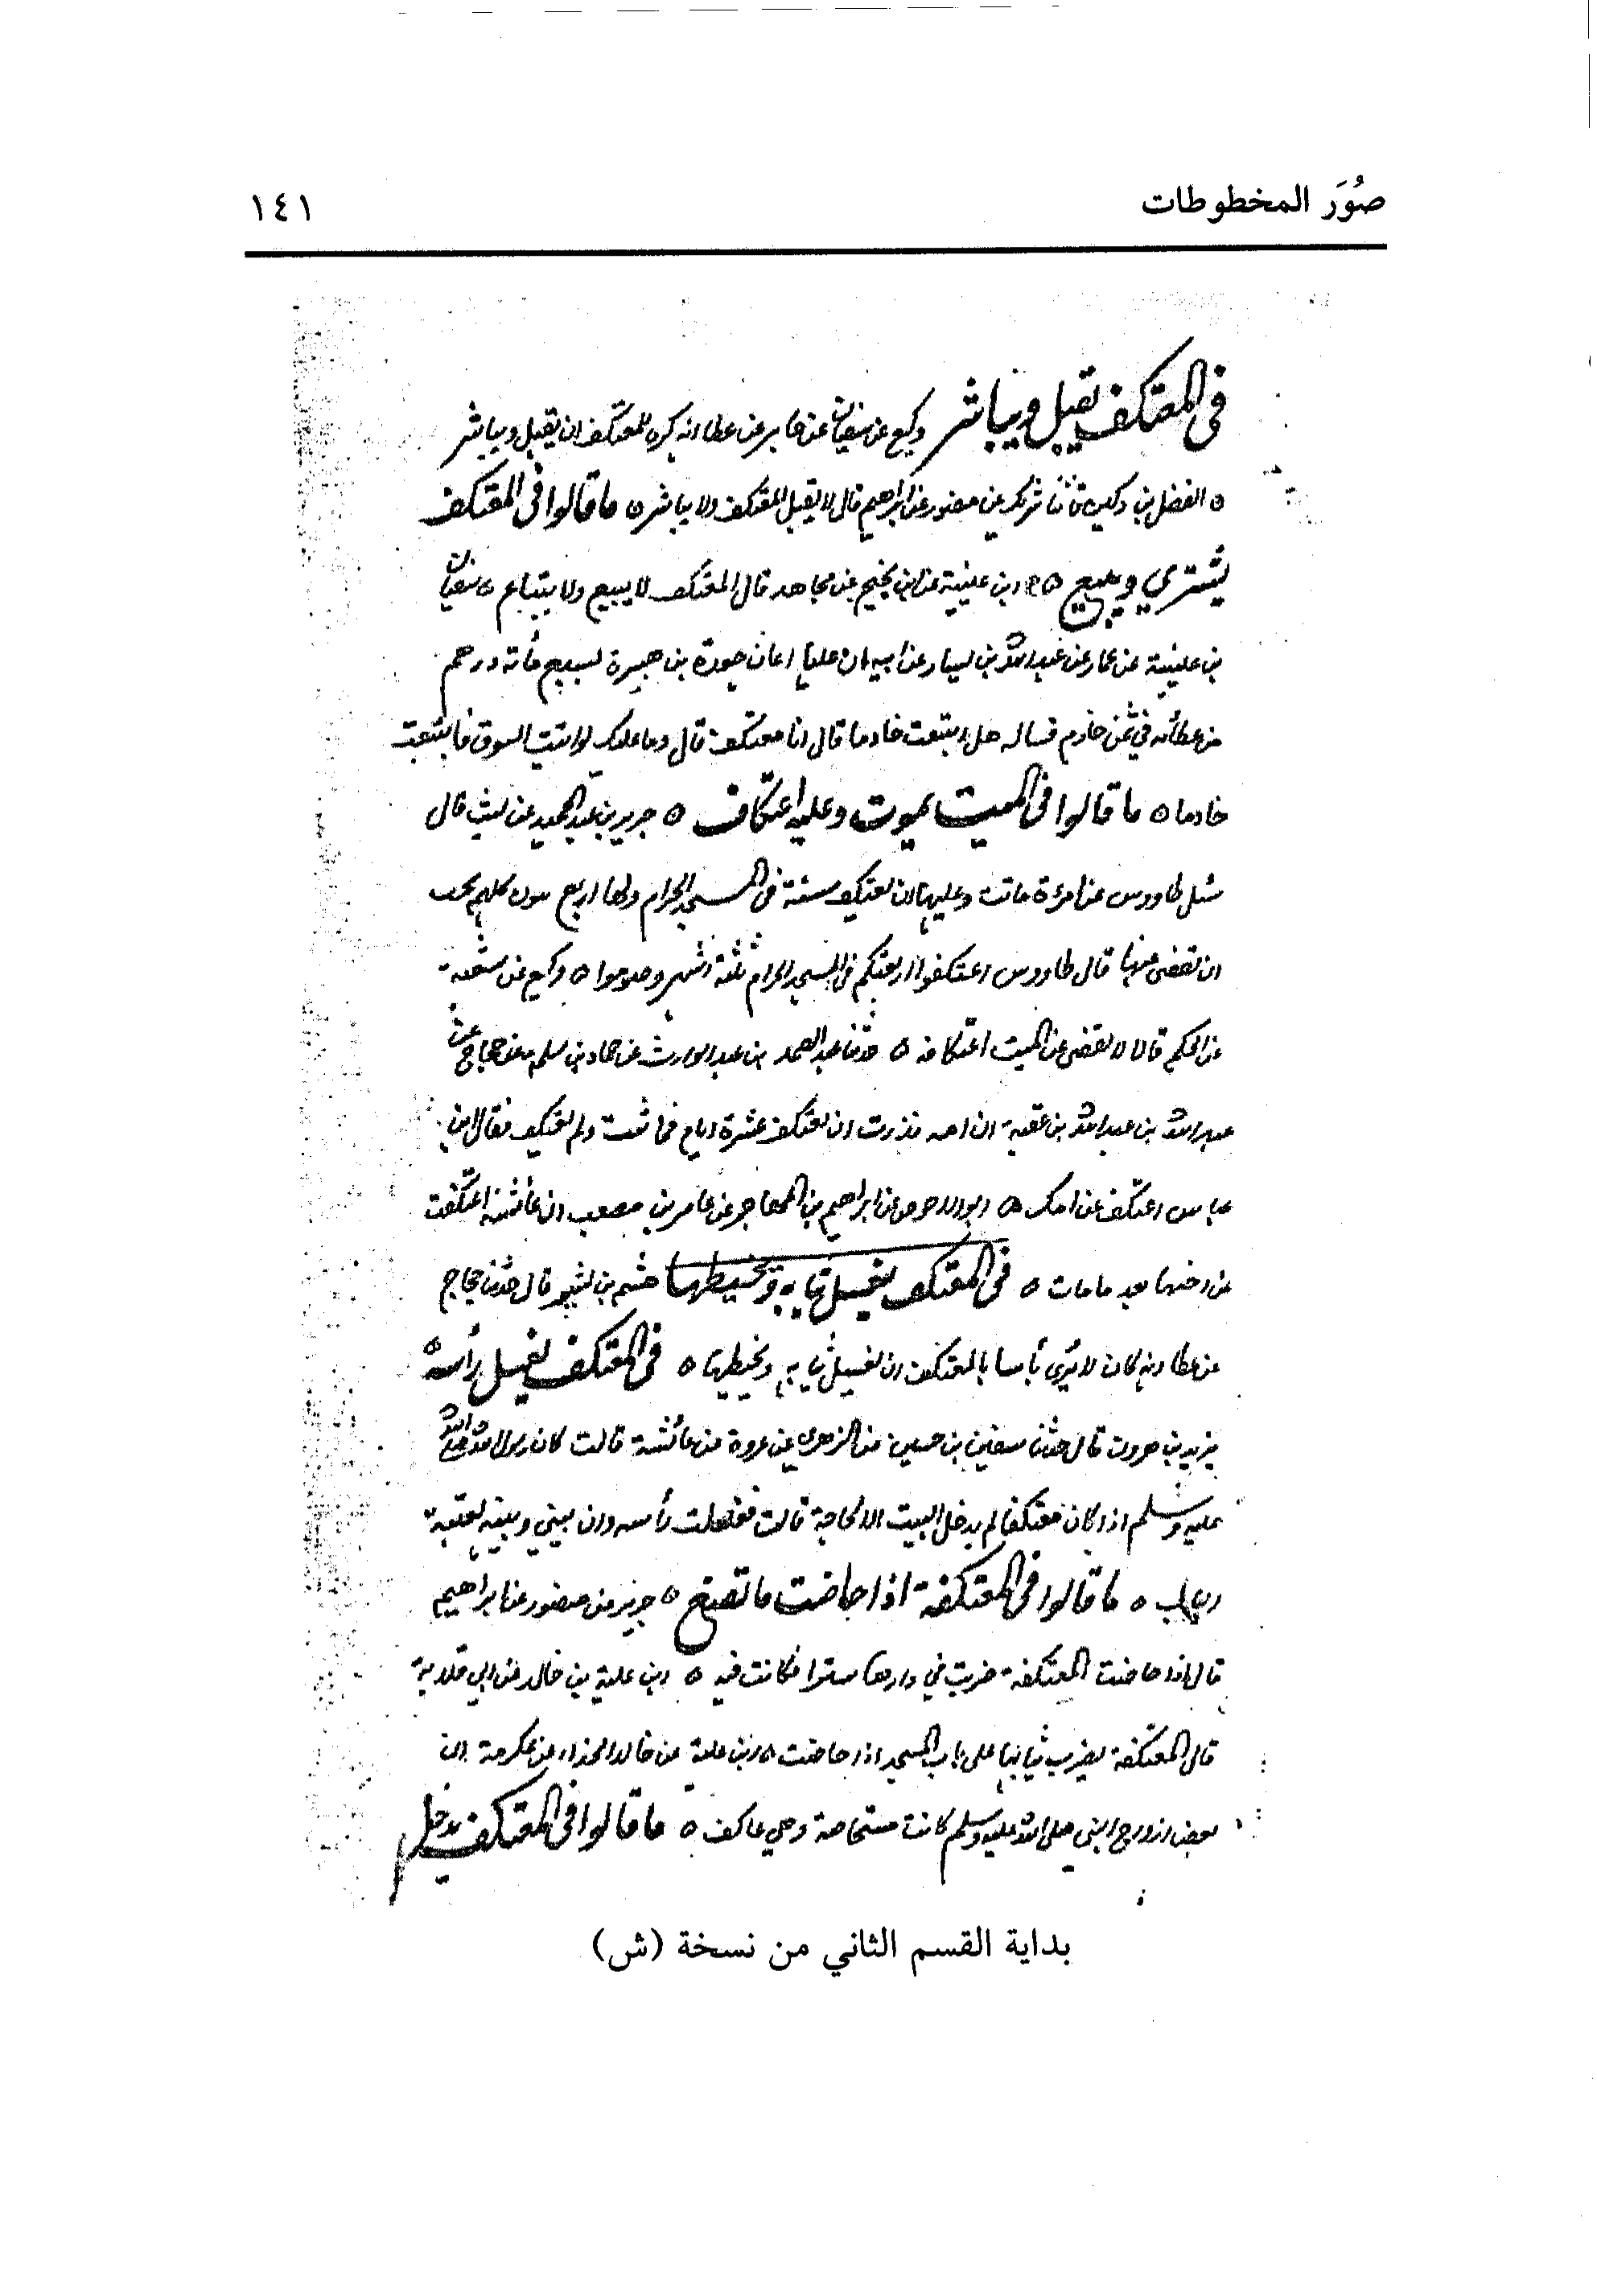 صُوَر المخطوطات
١٤١
في المعتكف يقبل ويباشر وكيع عن سفيان عن جابر عن عطا انه كره للمعتكف ان يقبل ويباشر
الفضل بن دكين قال ثنا شريك عن منصور عن ابراهيم قال لا يقبل المعتكف ولا يباشر ٥ ما قالوا في المعتكف
يشتري ويبيع ٥ ابن عيينة عن ابن نجيح عن مجاهد قال المعتكف لا يبيع ولا يبتاع سفيان
بن عيينة عن عمار عن عبد الله بن يسار عن ابيه ان عليا اعان جعدة بن هبيرة بسبع مأته درهم
من عطائه في ثمن خادم فساله هل ابتعت خادما قال انا معتكف قال وما عليك لو اتيت السوق فابتعت
خادما ٥ ما قالوا في الميت يموت وعليه اعتكاف ٥ جرير بن عبد الحميد عن ليث قال
سئل طاووس عن امرءة ماتت وعليها ان تعتكف سنة في المسجد الحرام ولها اربع بنون كلهم يحب
ان تقضي عنها قال طاووس اعتكفوا اربعتكم في المسجد الحرام ثلثة اشهر وصوموا ٥ وكيع عن شعبة
عن الحكم قالا لا يقضى عن الميت اعتكافه ٥ حدثنا عبد الصمد بن عبد الوارث عن حماد بن سلمه عن حجاج عن
عبد الله بن عبد الله بن عقبة ان امه نذرت ان تعتكف عشرة ايام فماتت ولم تعتكف فقال ابن
عباس اعتكف عن امك ٥ ابو الاحوص عن ابراهيم بن المهاجر عن عامر بن مصعب ان عائشة اعتكفت
عن اخيها بعد ما مات ٥ في المعتكف يغسل ثيابه ويخيطها هشيم بن بشير قال حدثنا حجاج
عن عطا انه كان لا يرى بأسا بالمعتكف ان يغسل ثيابه ويخيطها ٥ في المعتكف يغسل رأسه
يزيد بن هرون قال حدثنا سفين بن حسين عن الزهري عن عروة عن عائشة قالت كان رسول الله صلى الله
عليه وسلم اذا كان معتكفا لم يدخل البيت الا لحاجة قالت فغسلت رأسه وان بيني وبينه لعتبة
الباب ٥ ما قالوا في المعتكفة اذا حاضت ما تصنع ٥ جرير عن منصور عن ابراهيم
قال اذا حاضت المعتكفة ضربت في دارها سترا فكانت فيه ٥ ابن علية عن خالد عن ابي قلابة
قال المعتكفة تضرب ثيابها على باب المسجد اذا حاضت ٥ ابن علية عن خالد الحذاء عن عكرمة ان
بعض ازواج النبي صلى الله عليه وسلم كانت مستحاضة وهي عاكف ٥ ما قالوا في المعتكف يدخل
بداية القسم الثاني من نسخة (ش)